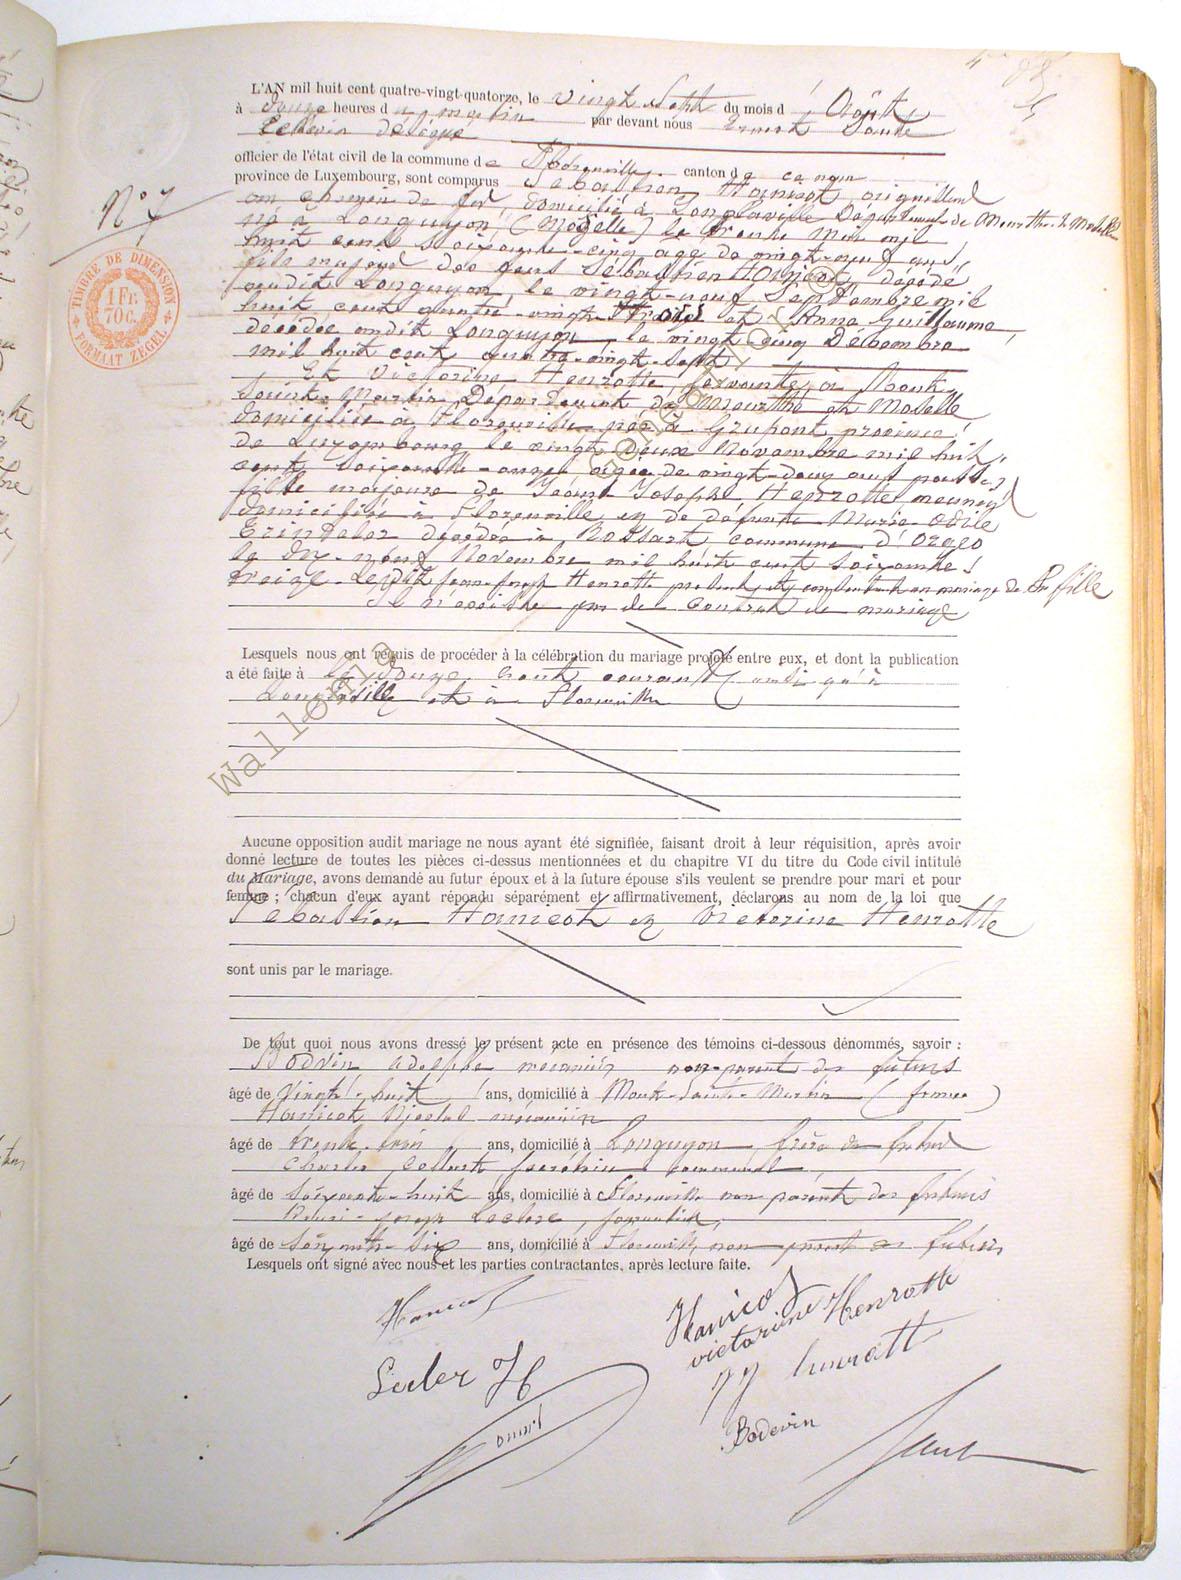 N° 7
TIMBRE DE DIMENSION
1 Fr.
70 c.
FORMAAT ZEGEL
L'AN mil huit cent quatre-vingt-quatorze, le vingt sept du mois d' Août
à heures du matin par devant nous Ernest
Echevin délégué
officier de l'état civil de la commune de Florenville canton de
province de Luxembourg, sont comparus Sébastien Hanicot aiguilleur
au chemin de fer, domicilié à Longlaville Département de Meurthe et Moselle
né à Longuyon (Moselle) le trente Mai mil
huit cent soixante-cinq, âgé de vingt-neuf ans,
fils majeur des feus Sébastien Hanicot, décédé
audit Longuyon le vingt-neuf Septembre mil
huit cent quatre vingt trois et Anne Guillaume
décédée audit Longuyon, le vingt cinq Décembre
mil huit cent quatre-vingt-sept
Et Victorine Henrotte, servante, à Mont
Saint-Martin, Département de Meurthe et Moselle
domiciliée à Florenville née à Grupont province
de Luxembourg le vingt deux Novembre mil huit
cent soixante-onze âgée de vingt-deux ans passés,
fille majeure de Jean Joseph Henrotte meunier
domicilié à Florenville et de défunte Marie Odile
décédée à Rossart commune d'Orgeo
le dix-neuf Novembre mil huit cent soixante-
treize. Ledit Jean-Joseph Henrotte présent et consentant au mariage de sa fille
Il n'existe pas de contrat de mariage
Lesquels nous ont requis de procéder à la célébration du mariage projeté entre eux, et dont la publication
a été faite à le douze Août courant ainsi qu'à
Longlaville et à Florenville
Aucune opposition audit mariage ne nous ayant été signifiée, faisant droit à leur réquisition, après avoir
donné lecture de toutes les pièces ci-dessus mentionnées et du chapitre VI du titre du Code civil intitulé
du Mariage, avons demandé au futur époux et à la future épouse s'ils veulent se prendre pour mari et pour
femme ; chacun d'eux ayant répondu séparément et affirmativement, déclarons au nom de la loi que
Sébastien Hanicot et Victorine Henrotte
sont unis par le mariage.
De tout quoi nous avons dressé le présent acte en présence des témoins ci-dessous dénommés, savoir :
Bodvin Adolphe mécanicien non-parent des futurs
âgé de vingt-huit ans, domicilié à Mont-Saint-Martin (france)
Hanicot mécanicien
âgé de trente-trois ans, domicilié à Longuyon frère du futur
Charles Collart communal
âgé de soixante-huit ans, domicilié à Florenville non parent des futurs
Henri-Joseph Leclere, journalier,
âgé de soixante-six ans, domicilié à Florenville non parent des futurs
Lesquels ont signé avec nous et les parties contractantes, après lecture faite.
Hanicot
Hanicot
victorine Henrotte
Lecler H
Bodevin
Wallonia Collection